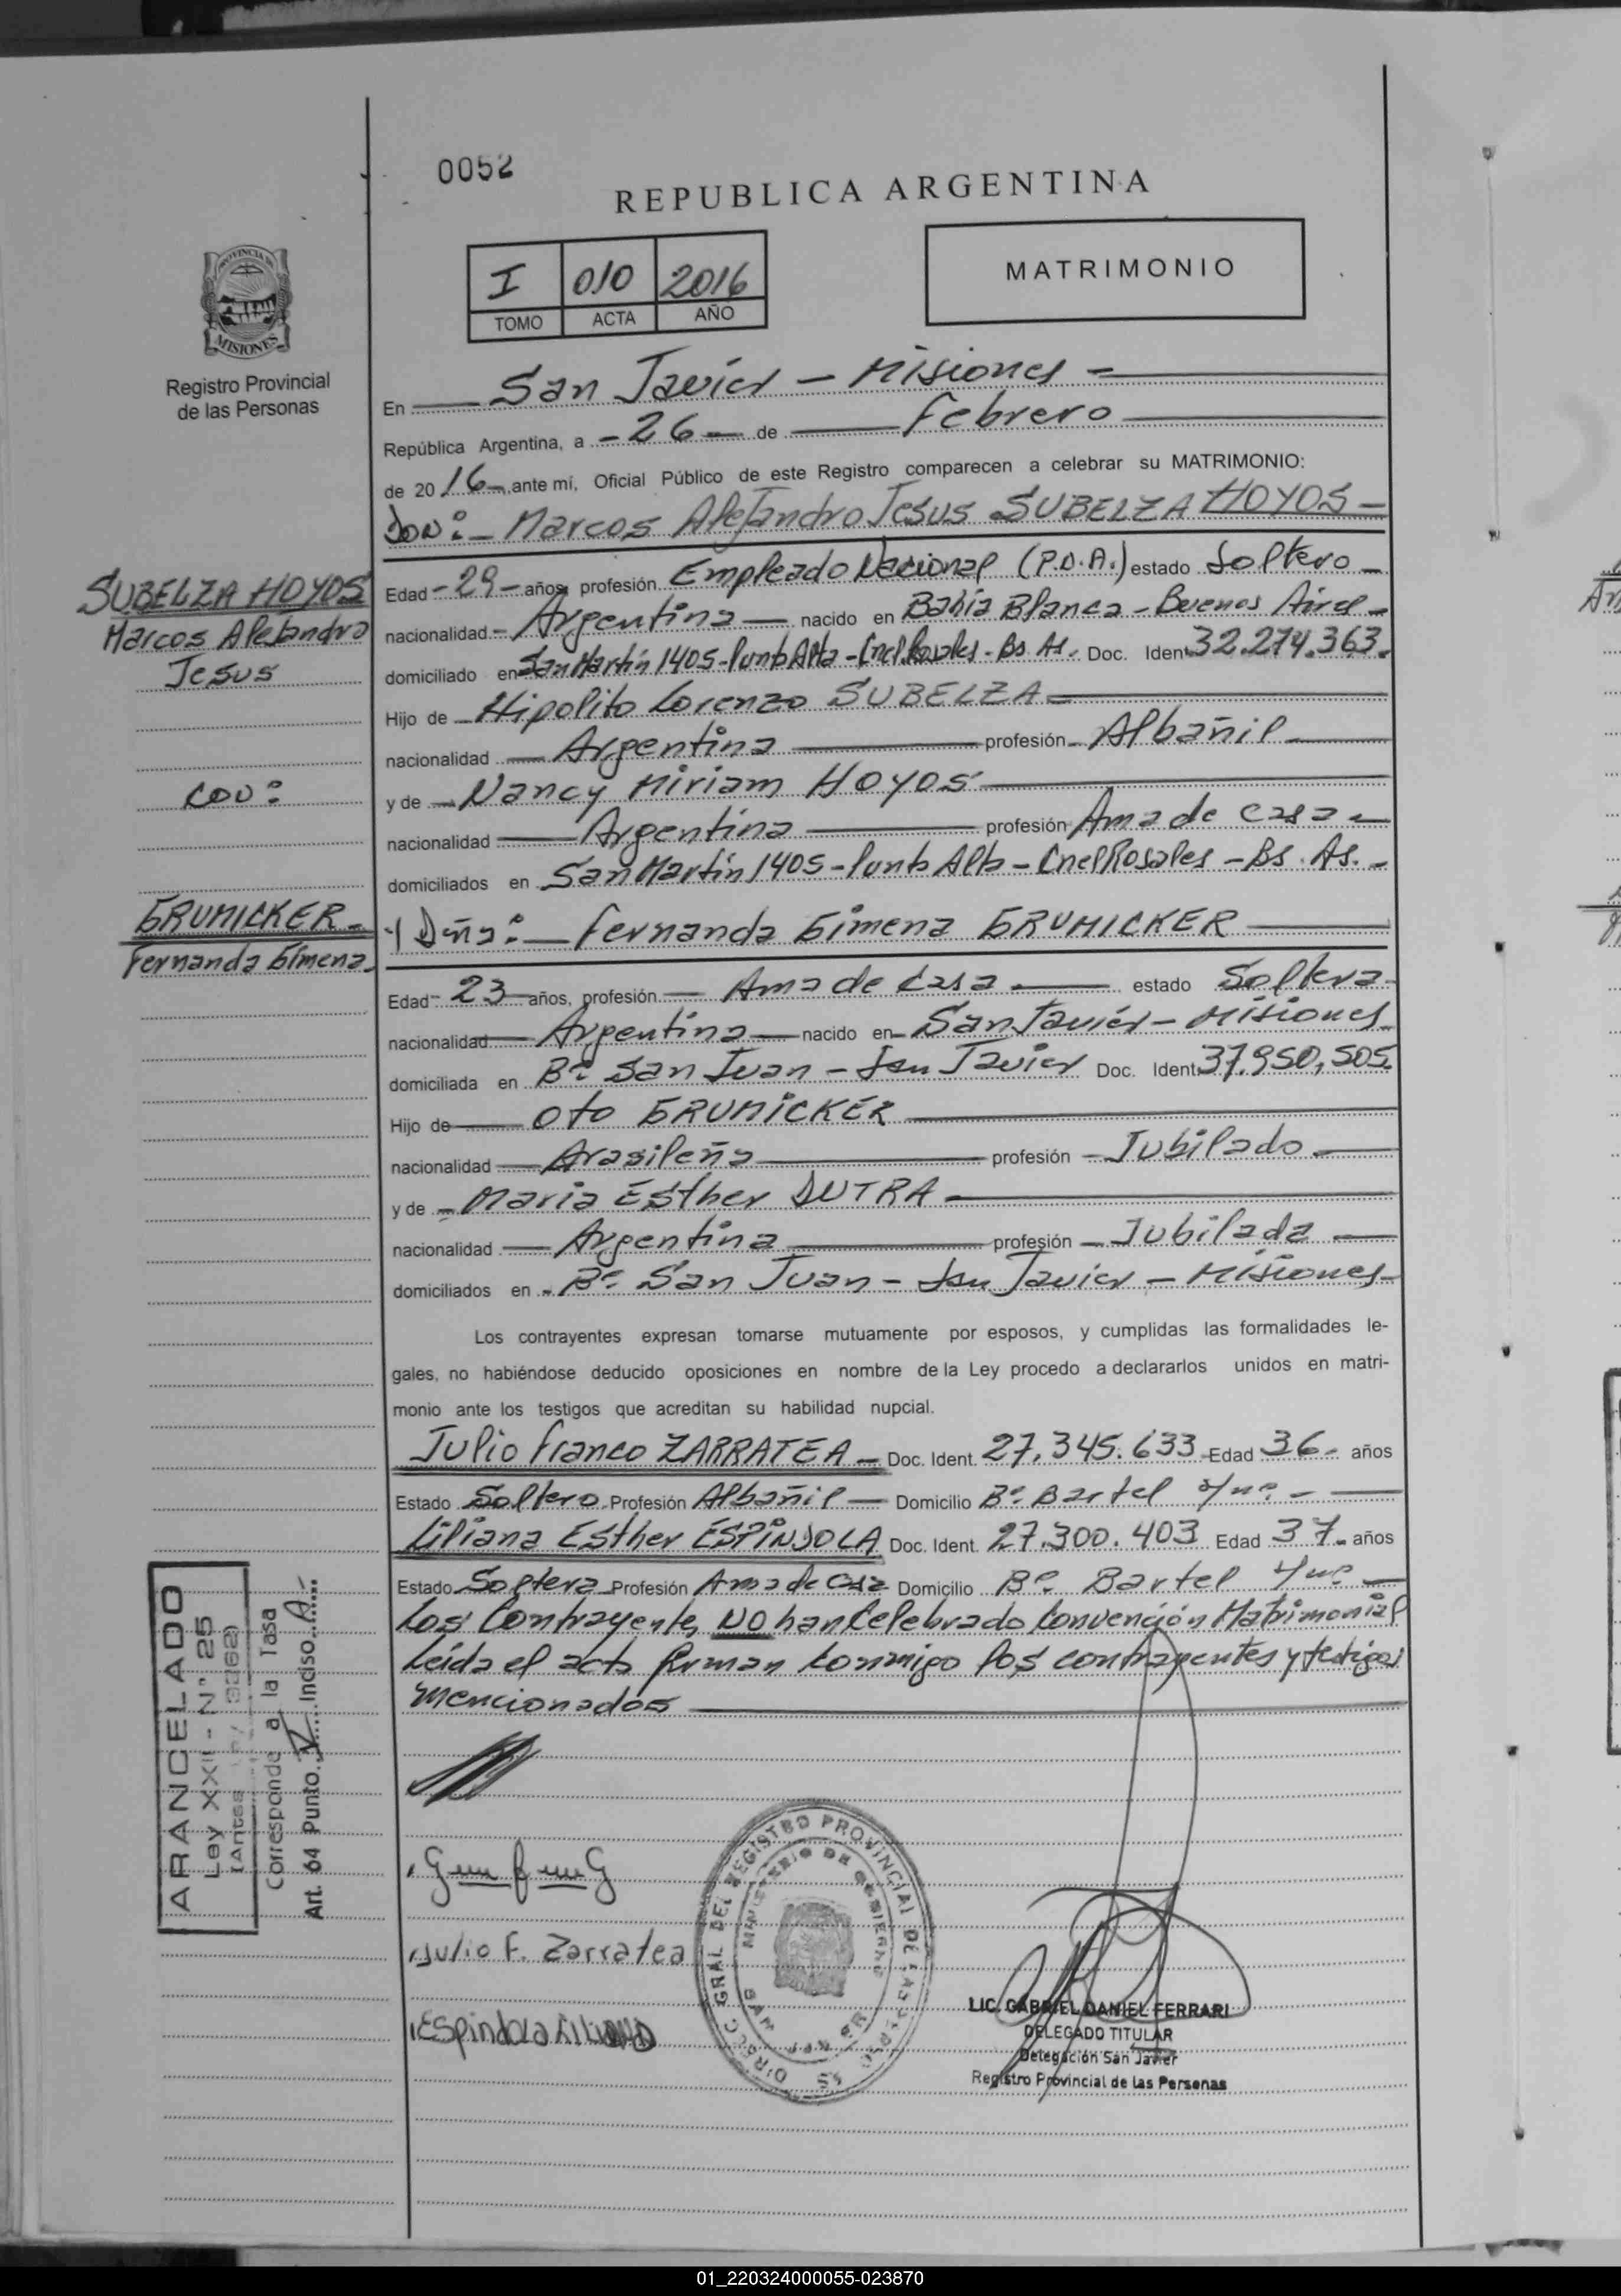 0052
REPUBLICA ARGENTINA
PROVINCIA DE
MISIONES
Registro Provincial
de las Personas
I 010 2016
TOMO ACTA AÑO
MATRIMONIO
En San Javier - Misiones -
República Argentina, a - 26 - de Febrero
de 20 16 - ante mí, Oficial Público de este Registro comparecen a celebrar su MATRIMONIO:
Don: - Marcos Alejandro Jesus SUBELZA HOYOS -
SUBELZA HOYOS
Marcos Alejandro
Jesus
con:
GRUNICKER -
Fernanda Gimena
Edad - 29 - años, profesión Empleado Nacional (P.D.A.) estado Soltero -
nacionalidad - Argentina - nacido en Bahía Blanca - Buenos Aires -
domiciliado en San Martín 1405 - Punta Alta - Cnel. Rosales - Bs. As. Doc. Ident. 32.274.363.
Hijo de - Hipolito Lorenzo SUBELZA -
nacionalidad - Argentina - profesión - Albañil -
y de - Nancy Miriam HOYOS -
nacionalidad - Argentina - profesión Ama de casa -
domiciliados en San Martín 1405 - Punta Alta - Cnel Rosales - Bs. As. -
y Dña: - Fernanda Gimena GRUNICKER
Edad - 23 - años, profesión - Ama de Casa - estado Soltera -
nacionalidad - Argentina - nacido en - San Javier - Misiones
domiciliada en Bº San Juan - San Javier Doc. Ident. 37.950.505.
Hijo de - Oto GRUNICKER
nacionalidad - Brasileña - profesión - Jubilado -
y de - Maria Esther DUTRA -
nacionalidad - Argentina - profesión - Jubilada -
domiciliados en - Bº San Juan - San Javier - Misiones -
Los contrayentes expresan tomarse mutuamente por esposos, y cumplidas las formalidades le-
gales, no habiéndose deducido oposiciones en nombre de la Ley procedo a declararlos unidos en matri-
monio ante los testigos que acreditan su habilidad nupcial.
Julio Franco ZARRATEA - Doc. Ident. 27.345.633 Edad 36 - años
Estado Soltero Profesión Albañil - Domicilio Bº Bartel
Liliana Esther ESPINDOLA Doc. Ident. 27.300.403 Edad 37 - años
Estado Soltera Profesión Ama de Casa Domicilio Bº Bartel
Los Contrayentes NO han Celebrado Convención Matrimonial
Leída el acta firman conmigo los contrayentes y testigos
mencionados
ARANCELADO
Ley XXII - Nº 25
(Antes 3262)
Corresponde a la Tasa
Art. 64 Punto V Inciso A
Julio F. Zarratea
Espindola Liliana
DIRECC GRAL DEL REGISTRO PROVINCIAL DE LAS PERSONAS
MINISTERIO DE GOBIERNO
LIC. GABRIEL DANIEL FERRARI
DELEGADO TITULAR
Delegación San Javier
Registro Provincial de las Personas
01_220324000055-023870